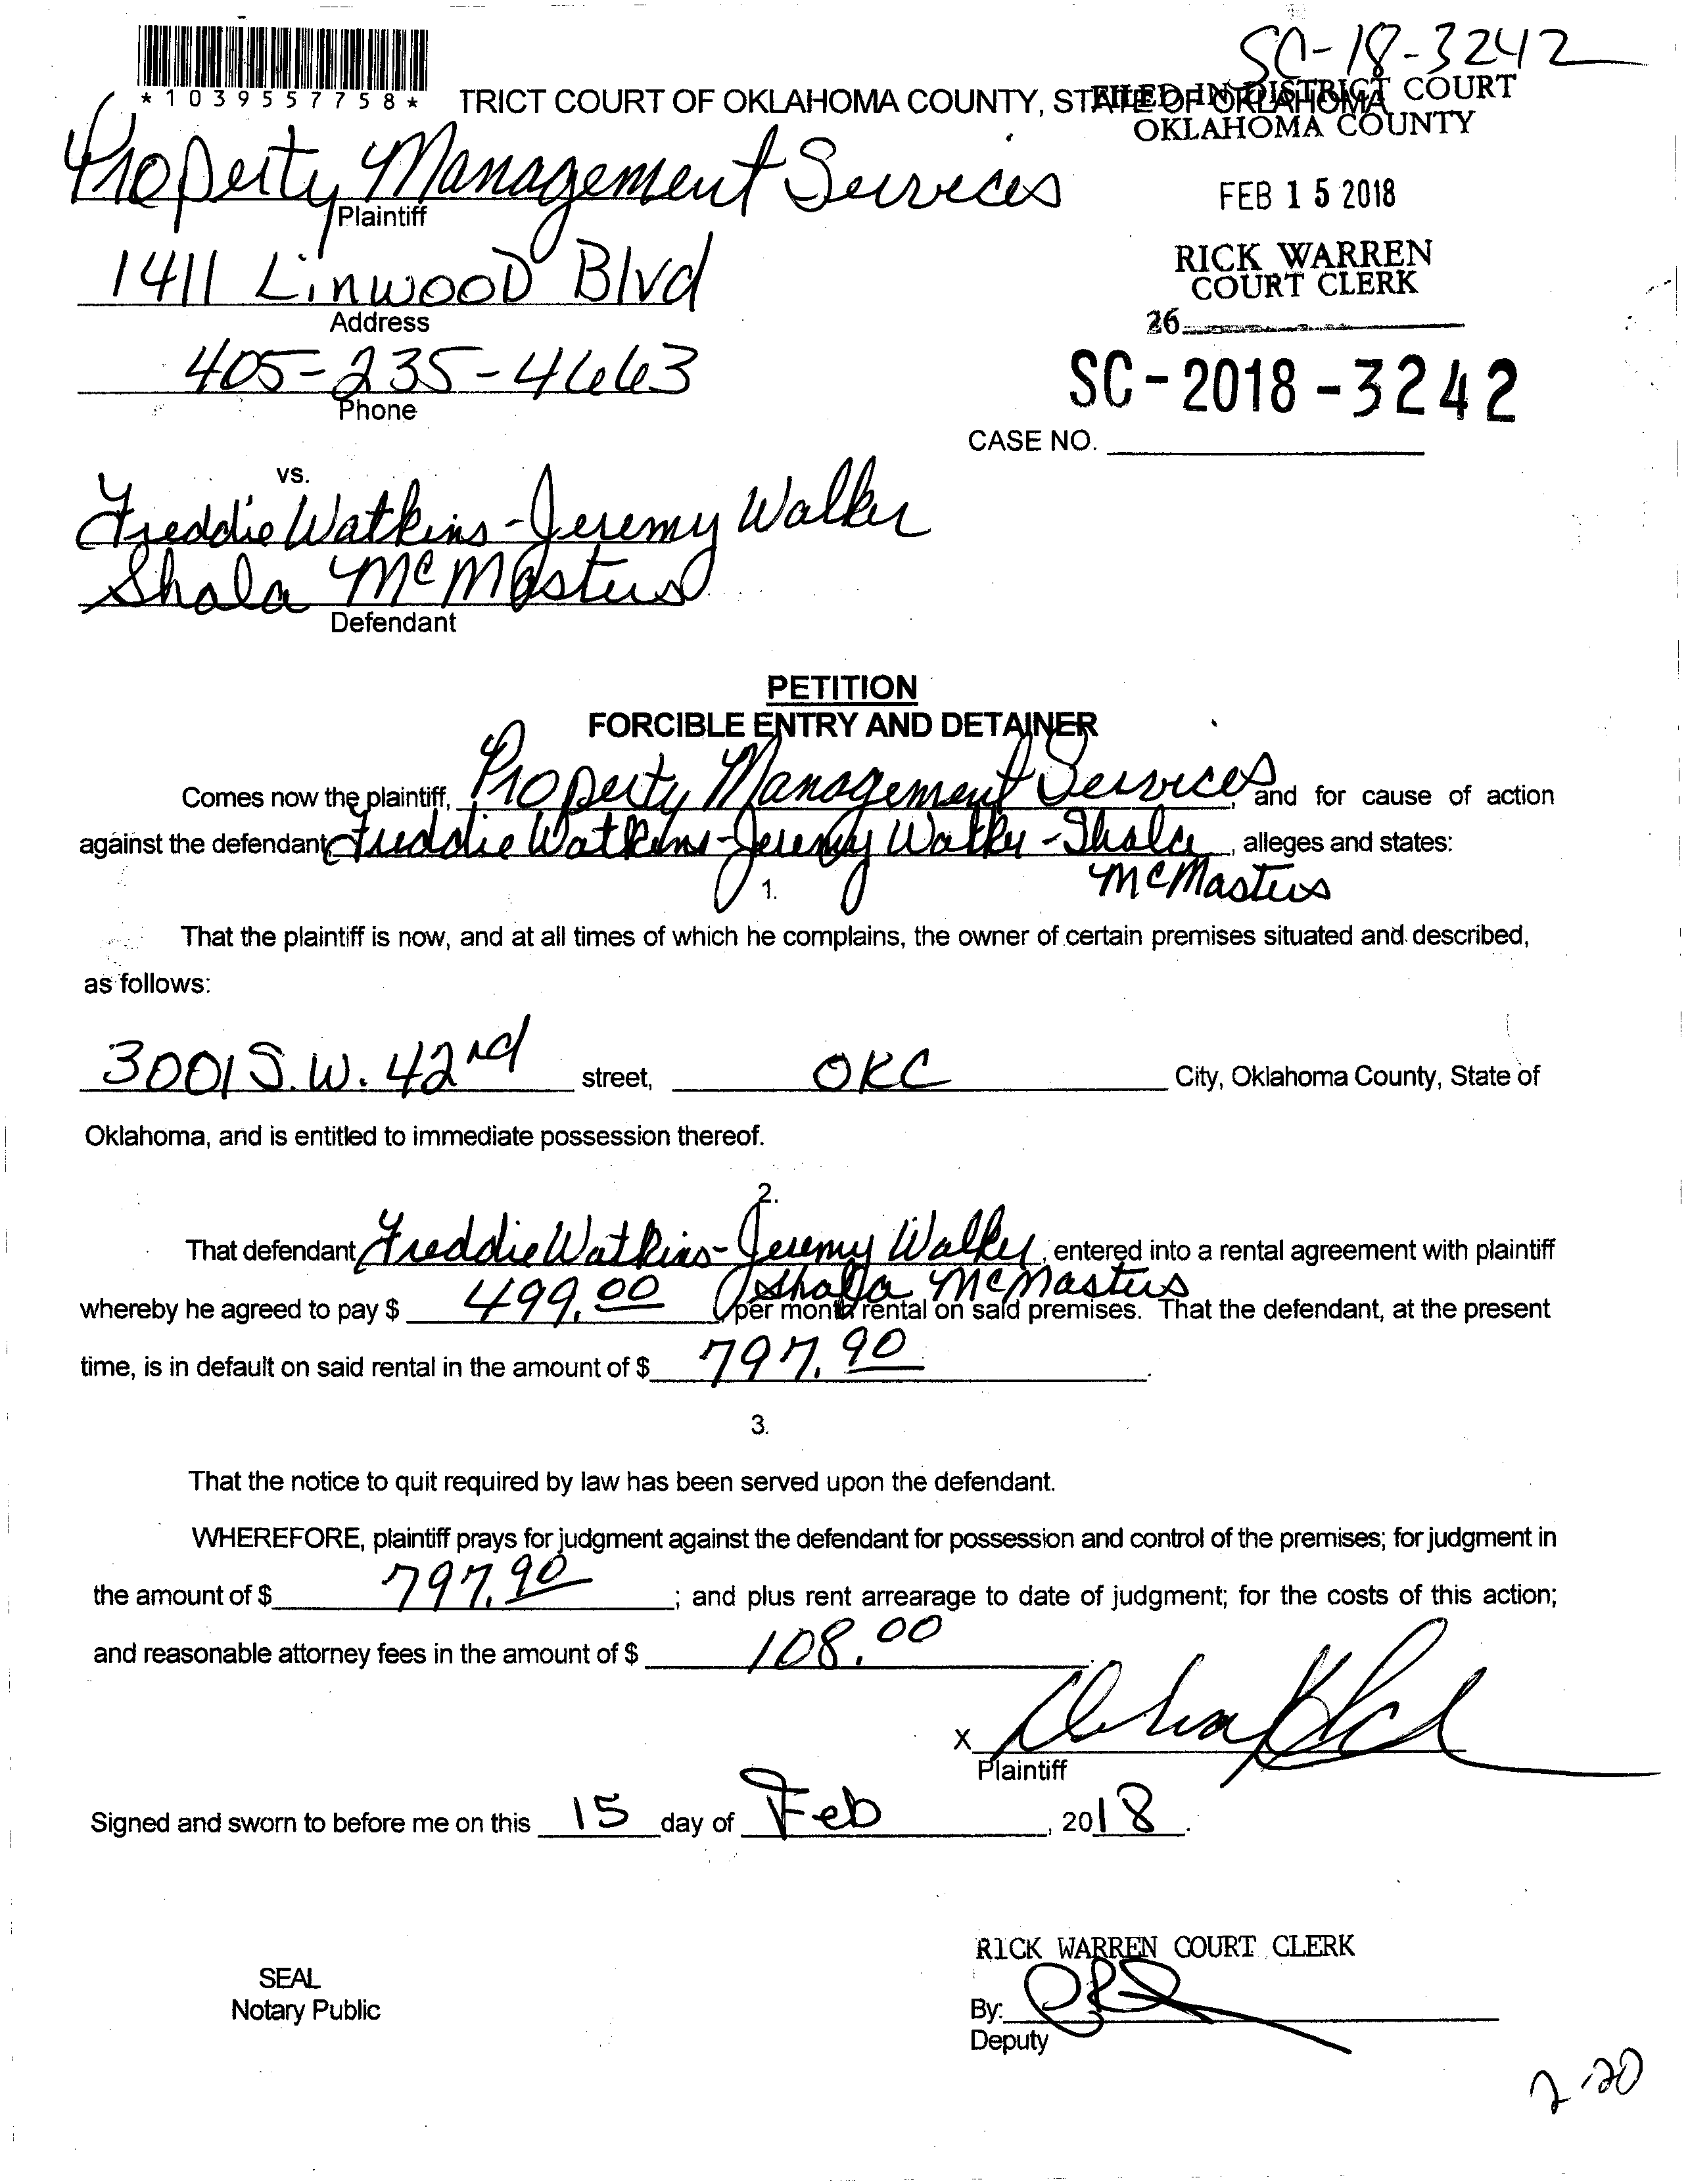 SC-18-3242
*1039557758*
TRICT COURT OF OKLAHOMA COUNTY, STATE OF OKLAHOMA
FILED IN DISTRICT COURT
OKLAHOMA COUNTY
Property Management Services
Plaintiff
FEB 15 2018
1411 Linwood Blvd
Address
RICK WARREN
COURT CLERK
26
405-235-4663
Phone
SC-2018-3242
CASE NO.
vs.
Freddie Watkins-Jeremy Walker
Shala McMasters
Defendant
PETITION
FORCIBLE ENTRY AND DETAINER
Comes now the plaintiff, Property Management Services, and for cause of action
against the defendant Freddie Watkins-Jeremy Walker-Shala, alleges and states:
McMasters
1.
That the plaintiff is now, and at all times of which he complains, the owner of certain premises situated and described,
as follows:
3001 S.W. 42nd street, OKC City, Oklahoma County, State of
Oklahoma, and is entitled to immediate possession thereof.
2.
That defendant Freddie Watkins-Jeremy Walker, entered into a rental agreement with plaintiff
Shala McMasters
whereby he agreed to pay $ 499.00 per month rental on said premises. That the defendant, at the present
time, is in default on said rental in the amount of $ 797.90.
3.
That the notice to quit required by law has been served upon the defendant.
WHEREFORE, plaintiff prays for judgment against the defendant for possession and control of the premises; for judgment in
the amount of $ 797.90; and plus rent arrearage to date of judgment; for the costs of this action;
and reasonable attorney fees in the amount of $ 108.00.
X
Plaintiff
Signed and sworn to before me on this 15 day of Feb, 2018.
RICK WARREN COURT CLERK
SEAL
Notary Public
By:
Deputy
2-20